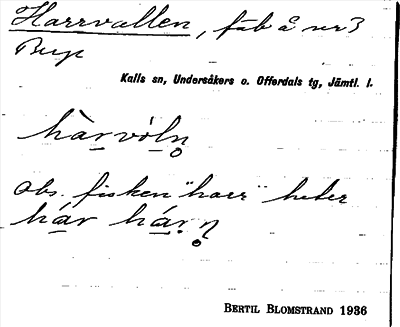 Harrvallen, fäb å nr 3
Berge
Kalls sn, Undersåkers o. Offerdals tg, Jämtl. l.
hàrvòln̥
obs. fisken "harr" heter
hár hár.n̥
BERTIL BLOMSTRAND 1936